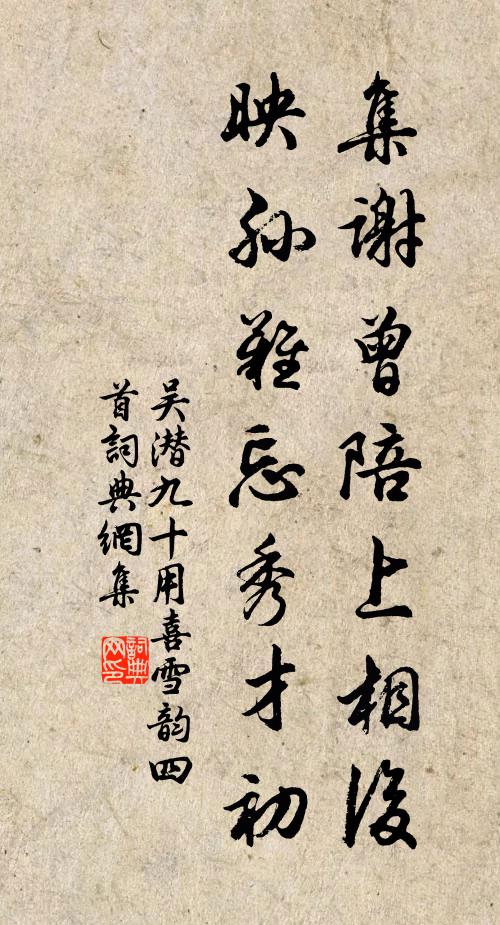 集谢曾陪上相后
映孙难忘秀才初
吴潜九十用喜雪韵四
首词典网集
词典
网印